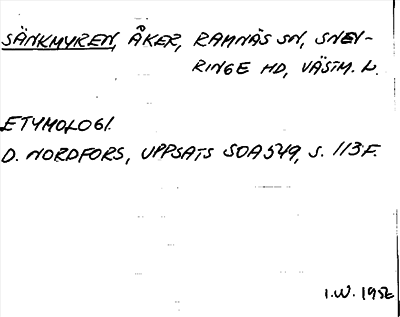 SÄNKMYREN, ÅKER, RAMNÄS SN, SNEV-
RINGE HD, VÄSTM. L.
ETYMOLOGI.
D. NORDFORS, UPPSATS SOA 549, S. 113 F.
I.W. 1956